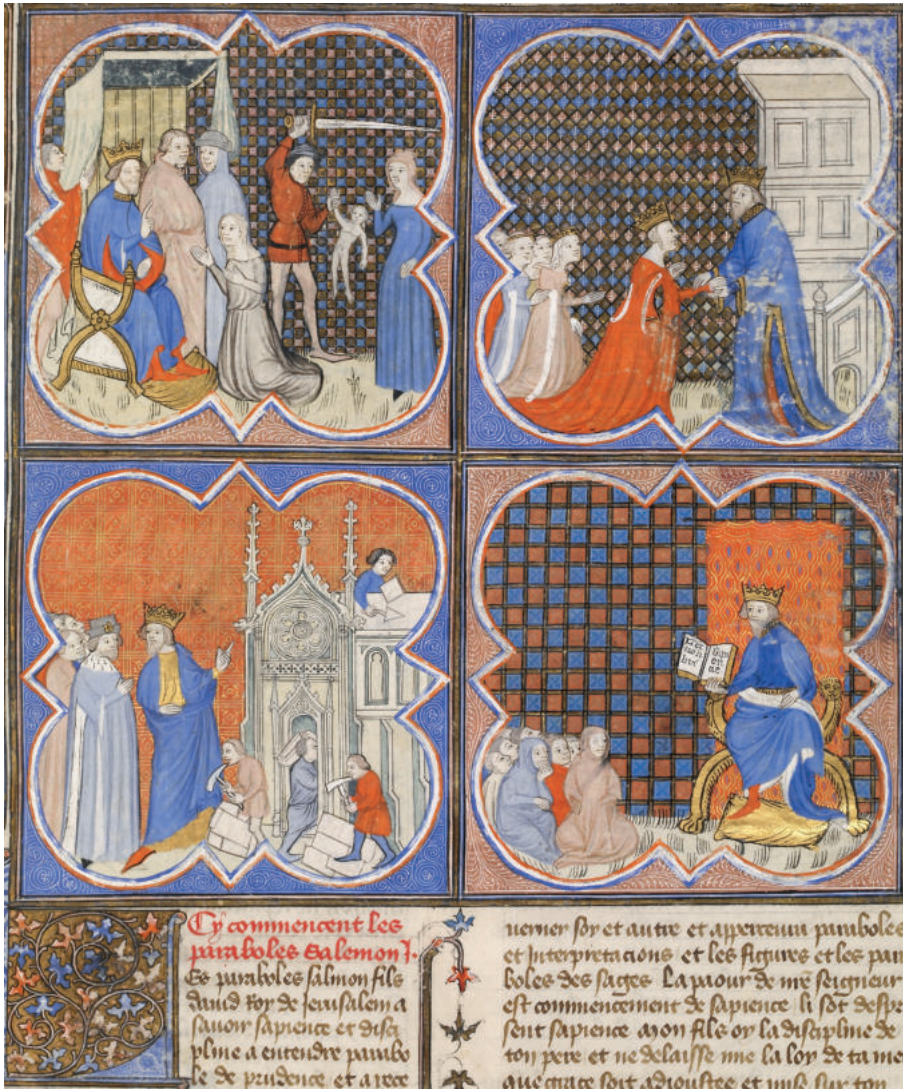 Cy commencent les
paraboles Salemon J.
Es paraboles salmon fils
dauid Roy de jerusalem a
sauoir sapience et disci
pline a entendre parabo
le de prudence et a rece
uerner soy et autre et appercevra paraboles
et Interpretacions et les figures et les para
boles des sages La paour de nre seigneur
est commencement de sapience li sot despi
sent sapience mon fils oy la discipline de
ton pere et ne delaisse mie la loy de ta me
que grace soit adioustee et mis sur ton